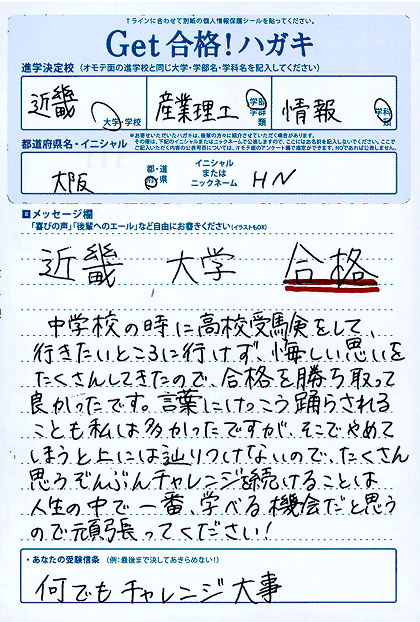 ↑ラインに合わせて別紙の個人情報保護シールを貼ってください。
Get合格!ハガキ
進学決定校(オモテ面の進学校と同じ大学・学部名・学科名を記入してください)
近畿 大学・学校 産業理工 学部 学群 類 情報 学科 類
都道府県名・イニシャル
大阪 都・道 府・県 イニシャル または ニックネーム HN
■メッセージ欄
「喜びの声」「後輩へのエール」など自由にお書きください(イラストもOK)
近畿 大学 合格
中学校の時に高校受験をして、
行きたいところに行けず、悔しい思いを
たくさんしてきたので、合格を勝ち取って
良かったです。言葉にけっこう踊らされる
ことも私は多かったですが、そこでやめて
しまうと上には辿りつけないので、たくさん
思うぞんぶんチャレンジを続けることは
人生の中で一番、学べる機会だと思う
ので頑張ってください!
・あなたの受験信条 (例:最後まで決してあきらめない!)
何でもチャレンジ大事